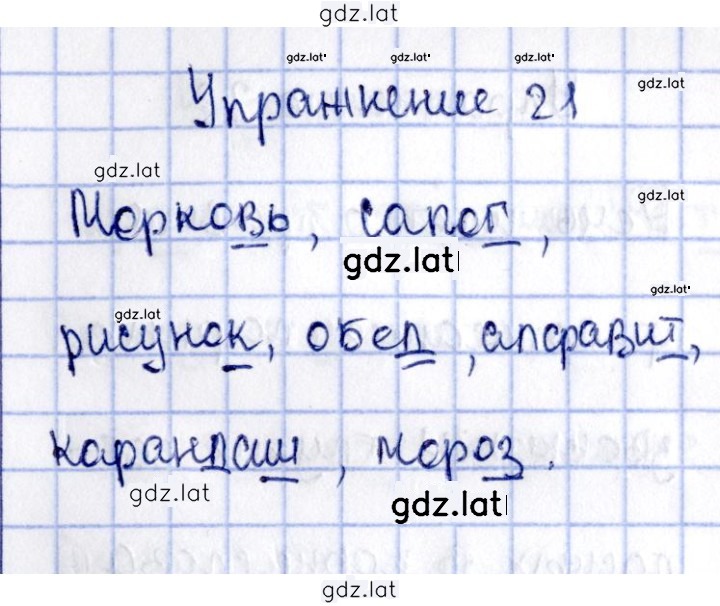 gdz.lat
gdz.lat gdz.lat gdz.lat gdz.lat
Упражнение 21
gdz.lat gdz.lat
Морковь, сапог,
gdz.lat
gdz.lat gdz.lat
рисунок, обед, алфавит,
карандаш, мороз.
gdz.lat gdz.lat
gdz.lat